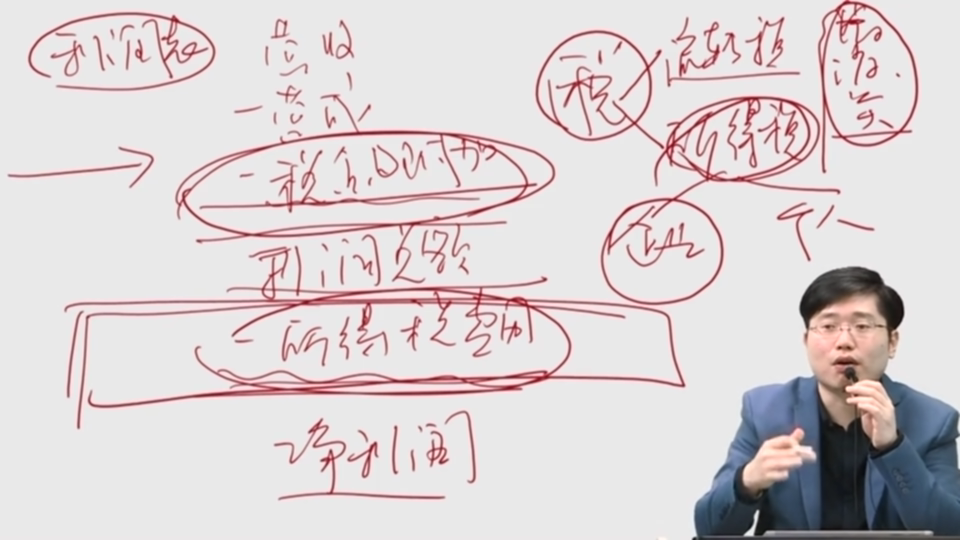 利润表
营收
-营成
-税金及附加
利润总额
-所得税费用
净利润
税
流转税
所得税
企业
个人